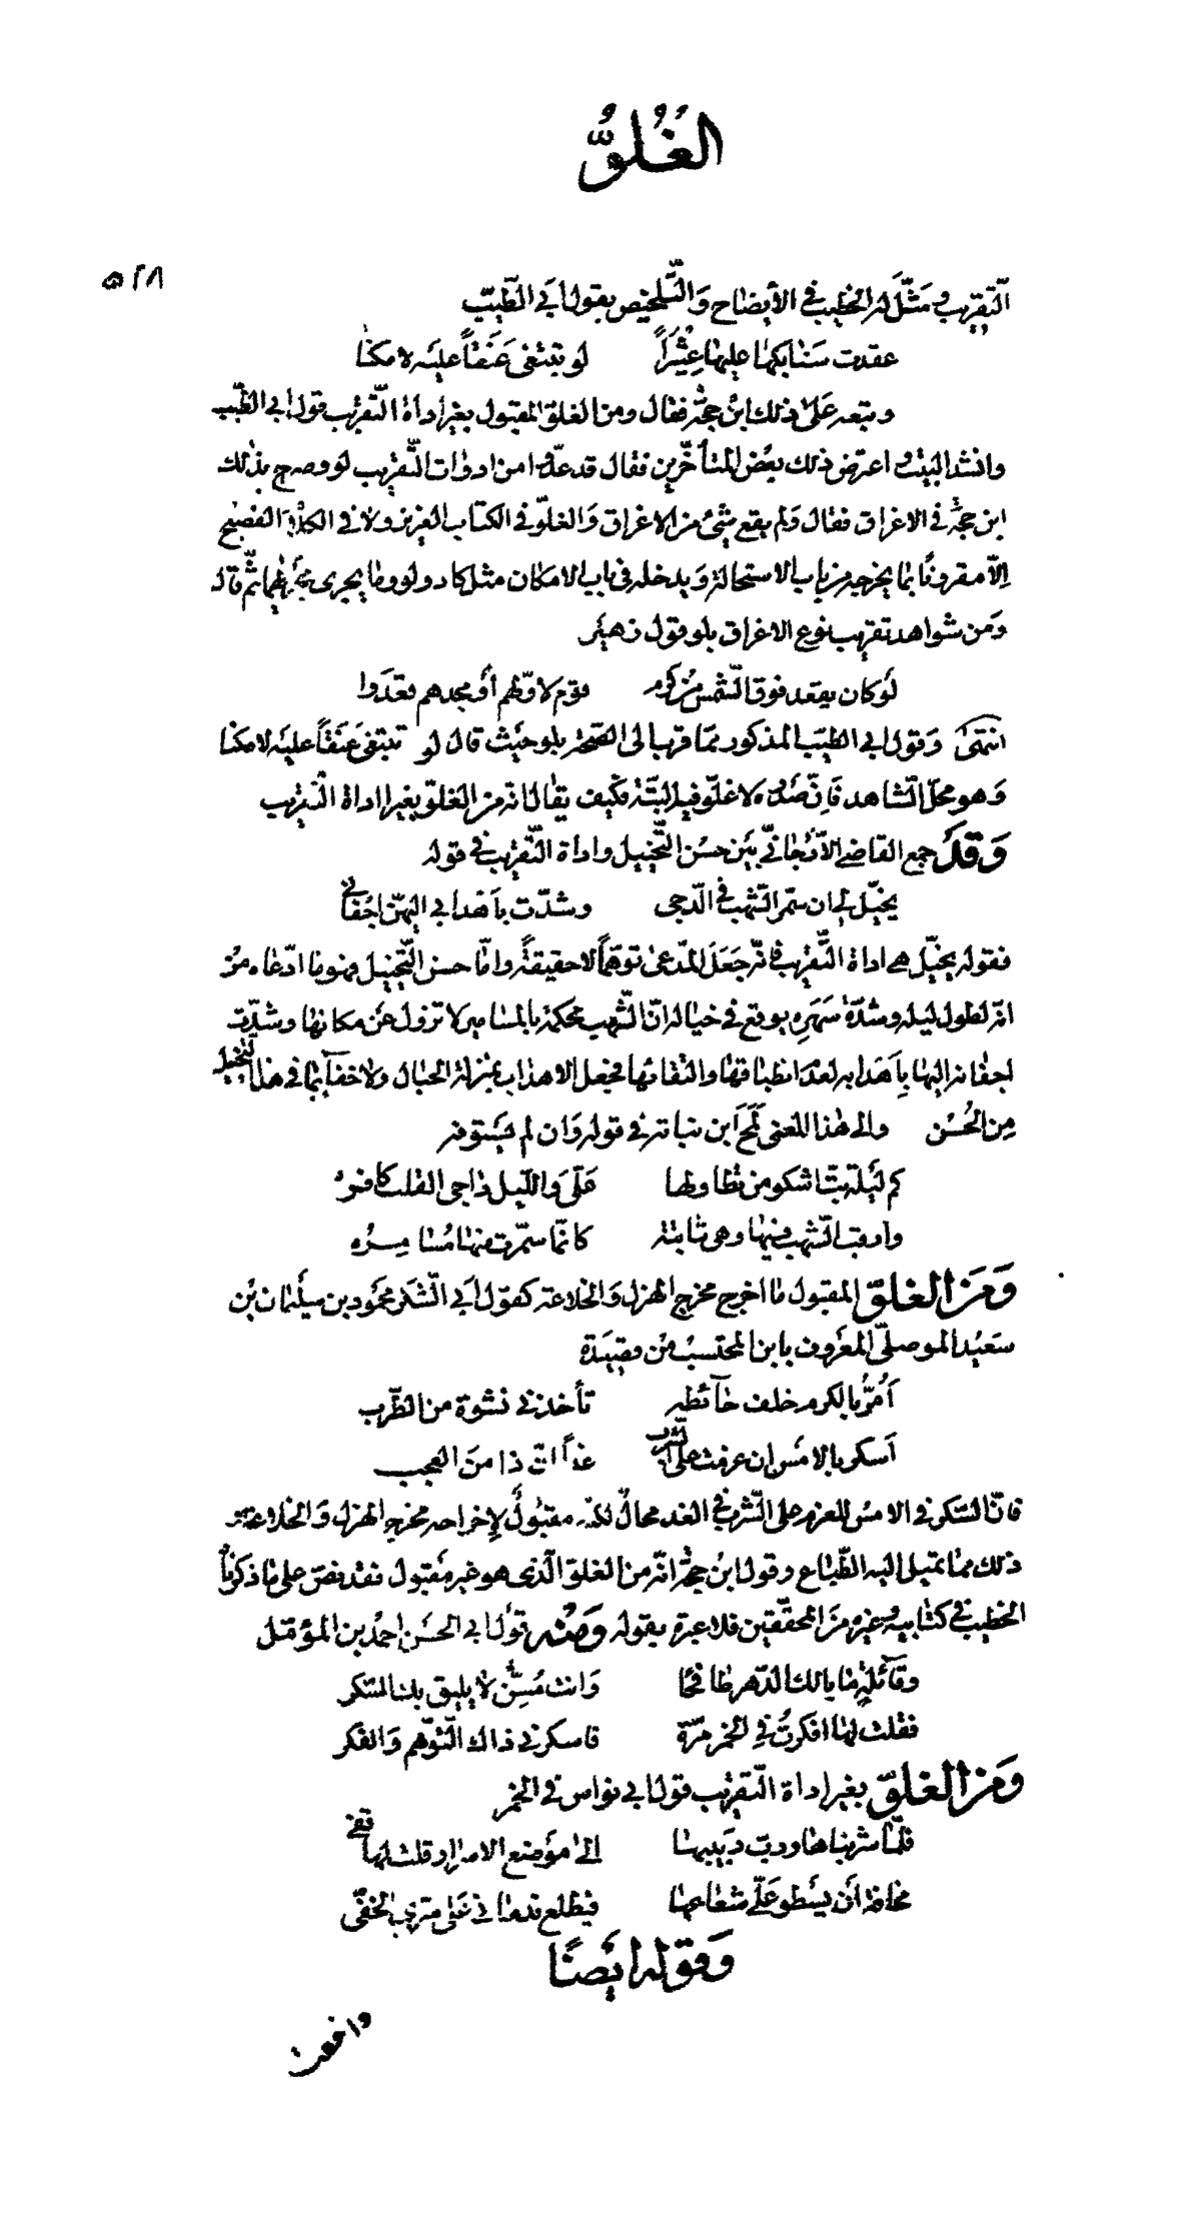 الغُلُوُّ
٥٢٨
التّقريب ومَثَّلَ له الخطيب في الأيضاح وَالتَّلخيص بقول أبَي الطّيّب
عقدت سَنابكها عليها عِثْيَراً لو تبتغي عَنَقاً عليَه لامكنا
وتبعه عَلى ذلك ابْن حجّة فقال ومن الغلوّ المقبول بغير أداة التّقريب قول أبي الطّيّب
وانشد البيت واعترض ذلك بعْض المتأخّرين فقال قد عدّوا من ادوات التّقريب لو وصرح بذلك
ابن حجّة في الاغراق فقال وَلم يقع شئ من الاغراق وَالغلوّ في الكتاب العزيز ولا في الكلام الفصيح
اِلّا مقرونًا بما يخرجه من باب الاستحالة وَيدخله في باب الامكان مثل كاد ولو وما يجرى مجراهما ثمّ قال
وَمن شواهد تقريب نوع الاغراق بلو قول زهيَر
لَو كان يقعد فوق الشّمس من كرم قوم لاوّلهم أو مجدهم قعَدَوا
انتهى وَقول ابي الطيّب المذكور ممّا قرب الى الصّحة بلو حيَث قال لو تبتغي عَنَقاً عليَه لامكنا
وَهو محلّ الشّاهد فاِنّ صدره لا غلوّ فيه البتّة فكيف يقال انه من الغلوّ بغير اداة التّقريب
وَقَد جمع القاضي الاّرّجانّي بيَن حسْن التّخييل واداة التّقريب في قوله
يخيّل لي ان سمّر الشّهب في الدّجى وشدّت باَهدابي اليهنّ اجْفاني
فقوله يخيّل هي اداة التّقريب فانّه جَعَلَ المدّعى توهّماً لا حقيقةً وامّا حسن التّخييل فهو ما ادّعاه من
انّه لطول ليله وشدّة سَهَرِه يوقع في خياله انّ الشّهب محكمة بالمسامير لا تزول عَن مكانها وشدّت
اجفانه اليها بِاَهدابه لعدم انطباقها والتقائها فجعل الاهداب بمنزلة الحبال ولا خفآء بما في هذا التّخييل
مِن الحُسْن والى هذا المعنى لَمَحَ اَبن نباته في قوله وَان لم يَستوفه
كم ليَلة بتّ اشكو من تطاولها عَلَّى وَاللّيل داجي القلب كافره
وارقب الشّهب فيها وهى ثابتة كانّما سمّرت منها مَسا مِره
وَمَنَ الغلوّ المقبول ما اخرج مخرج الهزل وَالخلاعة كقول اَبي الشّكر محمَود بن سليَمان بْن
سَعيْد الموصلّي المعَروف بابن المحتسبْ من قصيَدة
اَمُرّ بالكرم خلف حآئطه تأخذني نشوة من الطّرب
اَسكر بالامَس ان عزمت على الشّرب غداً انّ ذا منَ العجب
فانّ السّكر في الامسْ للعزم على الشّرب في الغد محالٌ لكنّه مقبولٌ لإخراجه مخرج الهزل وَالخلاعة و
ذلك ممّا تميل اليه الطّباع وقول ابْن حجّة انّه من الغلوّ الّذى هو غير مَقبول فقد نصّ على ما ذكرناه
الخطيب في كتابيه وَغيره منَ المحقّقين فلا عبرة بقوله وَمنْه قول ابي الحسَن احمْد بن المؤمّل
وقآئلةٍ ما بالك الدّهر طافحًا وَانت مُسنٌّ لا يليق بك السّكر
فقلت لها افكرتُ في الخمر مرّة فاسكرني ذاك التّوهّم وَالفكر
ومَنَ الغلوّ بغير اداة التّقريب قول ابي نواس في الخمر
فلمّا شربناها ودبّ دَبيبها الى موَضع الاسرار قلت لها قفي
مخافة أن يسَطو عَلَّى شعاعها فيطلع ندمانى عَلى سّري الخفّي
وَقوله ايَضًا
وافعت